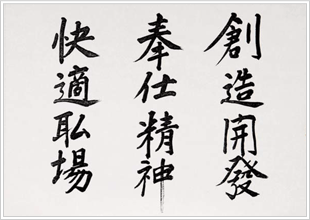 創造開發
奉仕精神
快適聀場